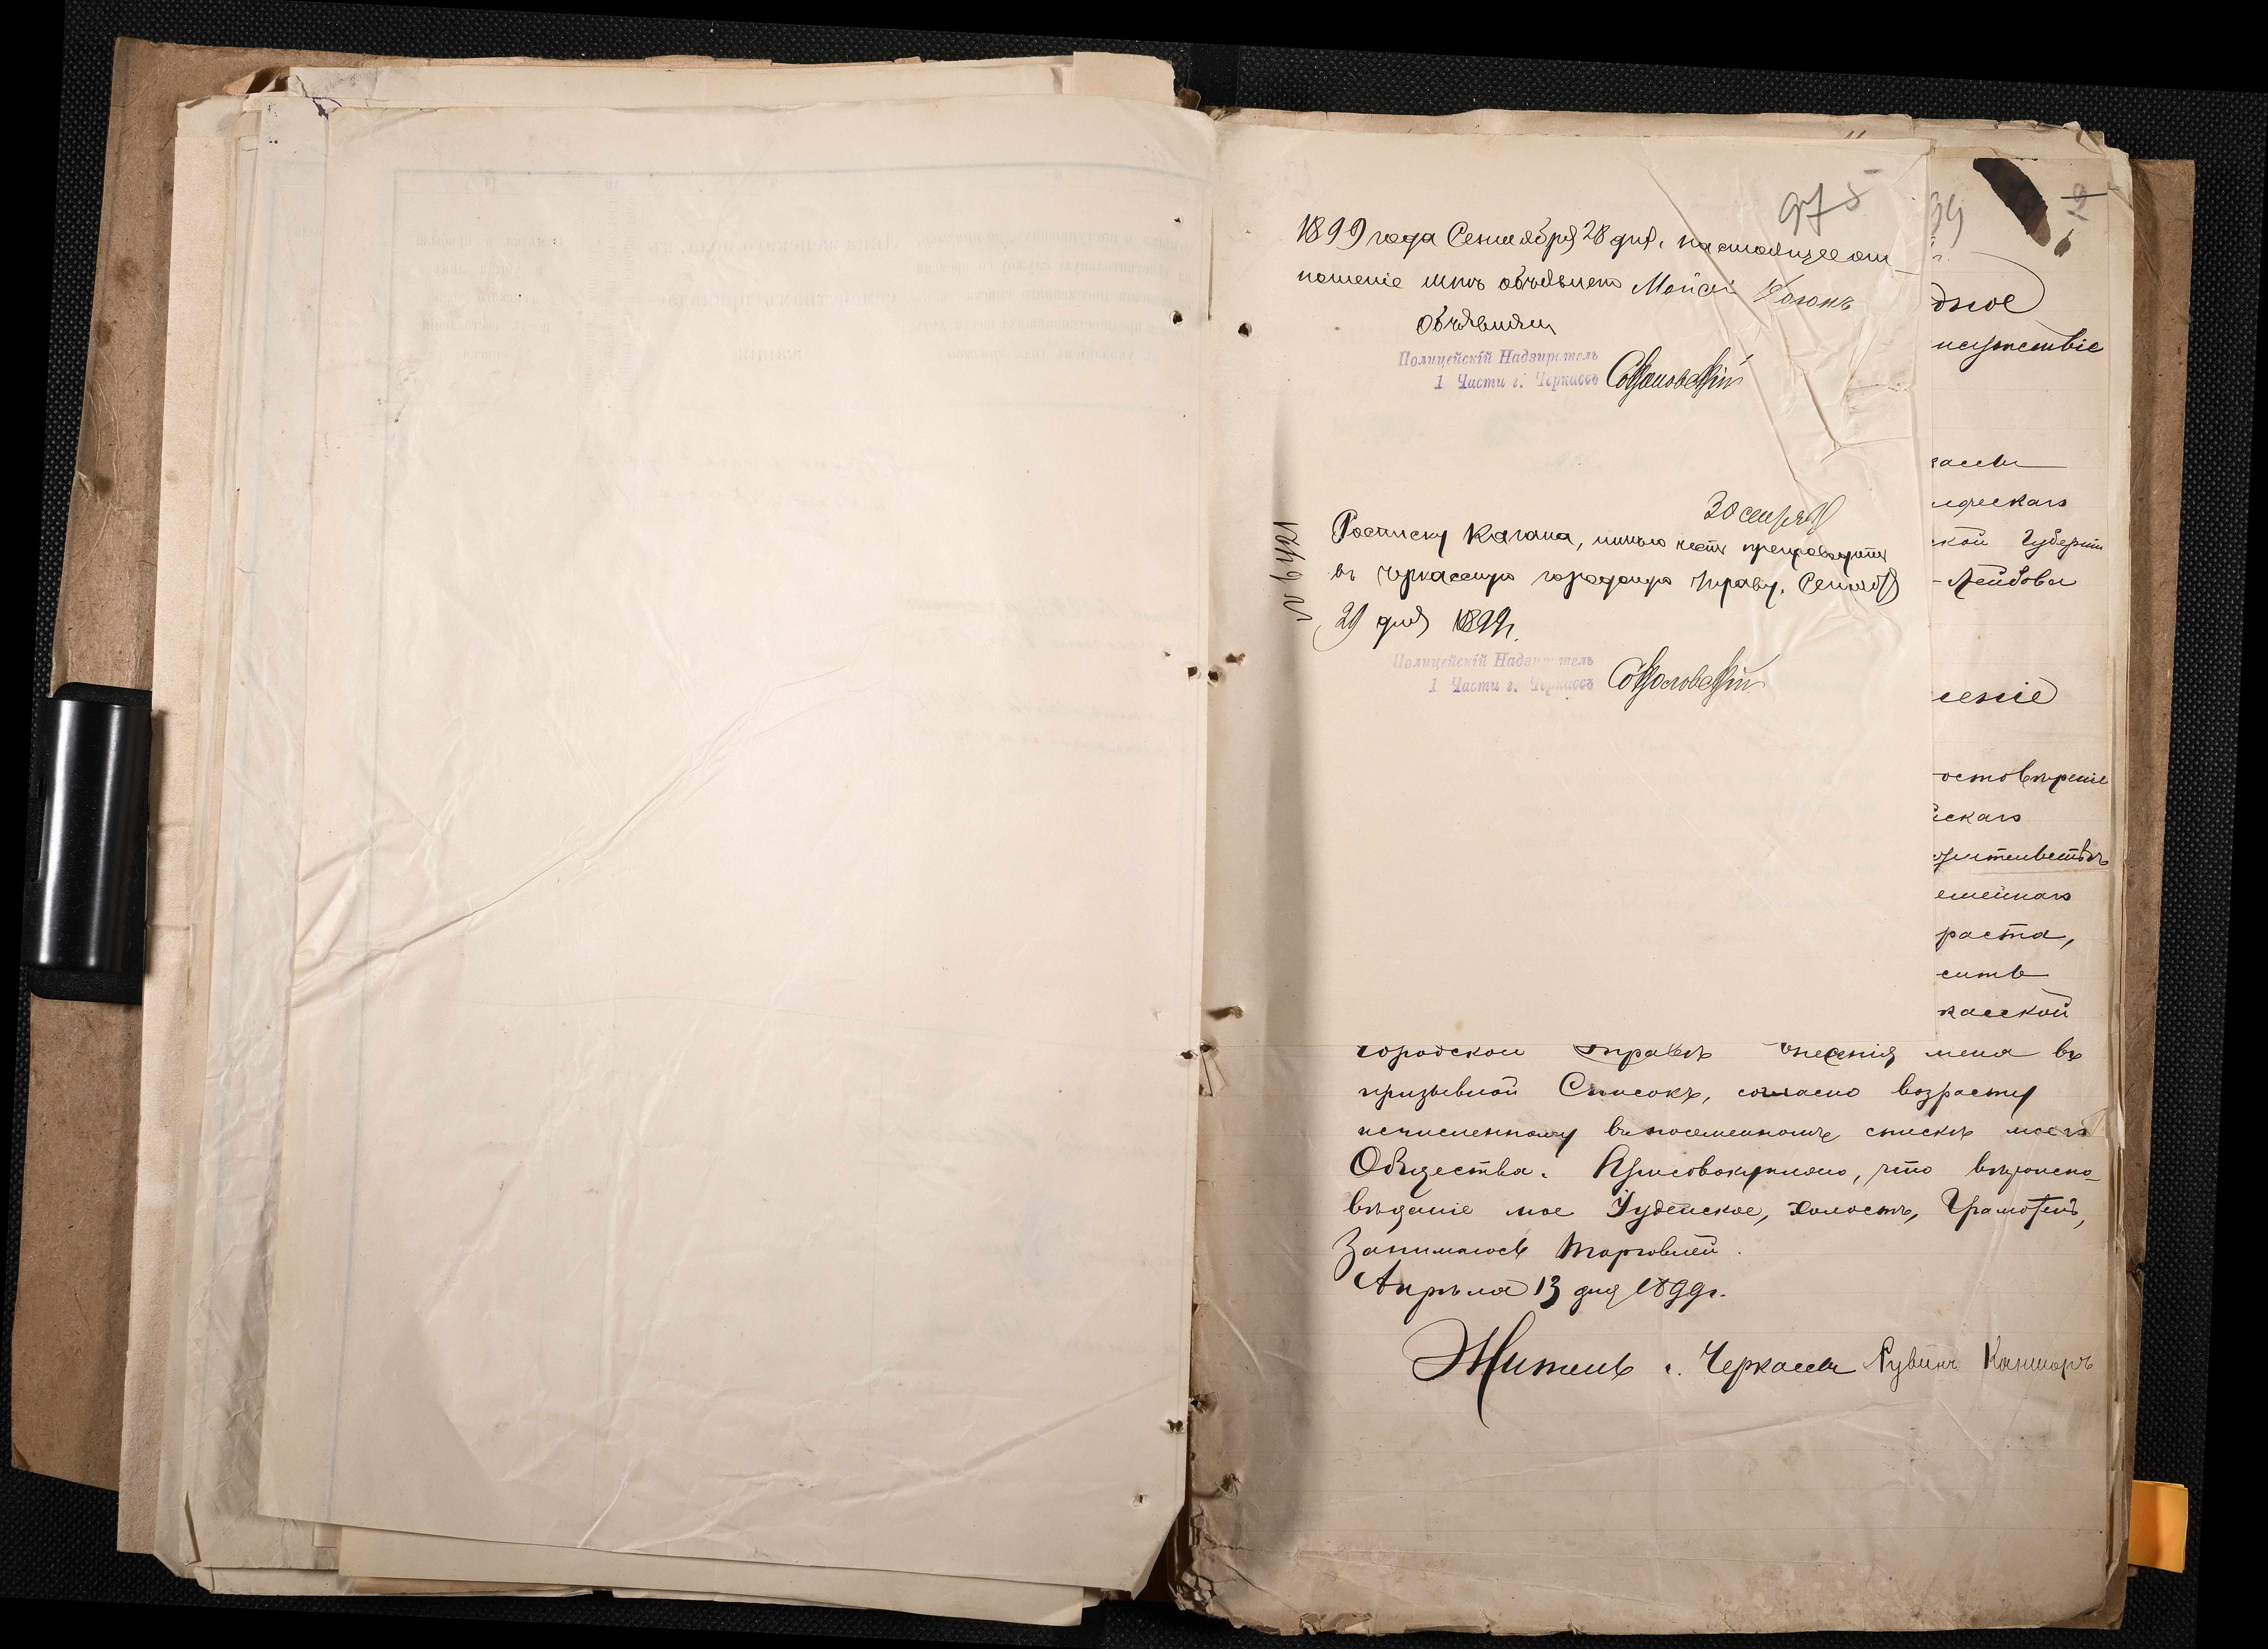 975
1899 года Сентября 28 дня, настоящее от-
ношеніе мнѣ объявлено Мойсей Коганъ
Объявилъ
Полицейскій Надзиратель
1 Части г. Черкассъ Соколовскій
30 сентября
Росписку Кагана, имѣю честь препроводить
въ Черкасскую городскую Управу. Сентября
29 дня 1899 г.
№
Полицейскій Надзиратель
1 Части г. Черкассъ Соколовскій
99
г.
дное
исутствіе
кассы
ской Губерніи
-Лейбовы
леніе
остовѣреніе
йскаго
емейнаго
раста,
сить
касской
городской Управѣ внесенія меня въ
призывной Списокъ, согласно возрасту
исчисленному въ посемейномъ спискѣ моего
Общества. Присовокупляю, что вѣроиспо-
вѣданіе мое Іудейское, холостъ, Грамотенъ,
Занимаюсь торговлей.
Апрѣля 13 дня 1899 г.
Житель г. Черкассы Рувинъ Канторъ